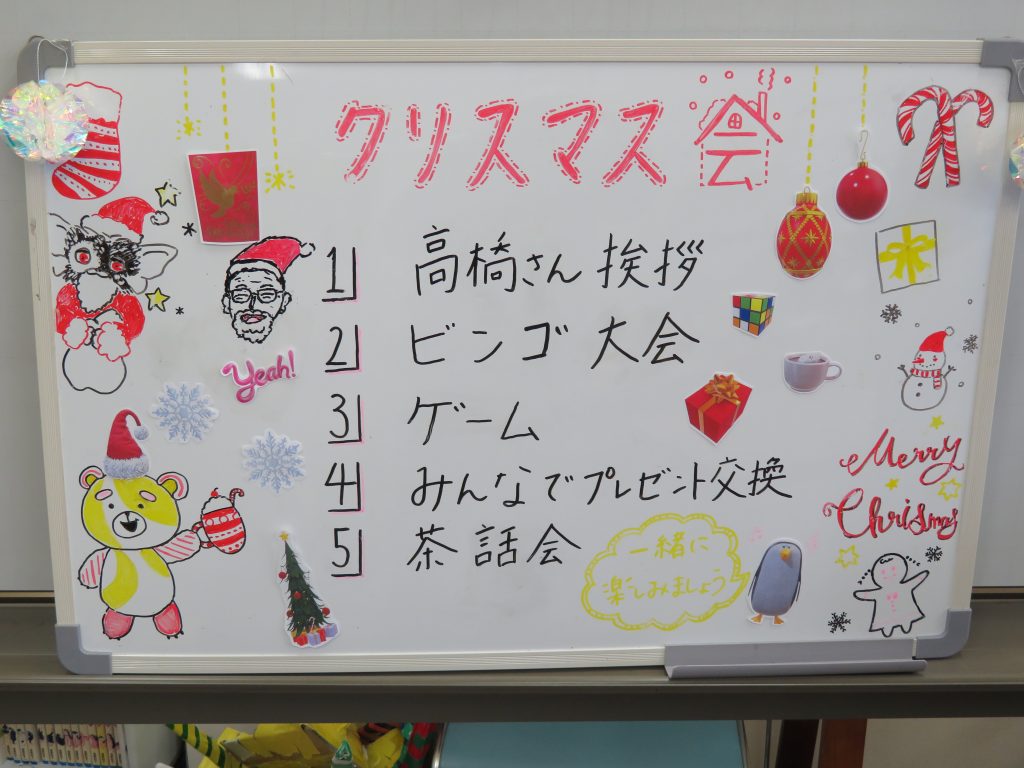 クリスマス会
1 高橋さん挨拶
2 ビンゴ大会
3 ゲーム
4 みんなでプレゼント交換
5 茶話会
Yeah!
一緒に
楽しみましょう
Merry
Chrismas